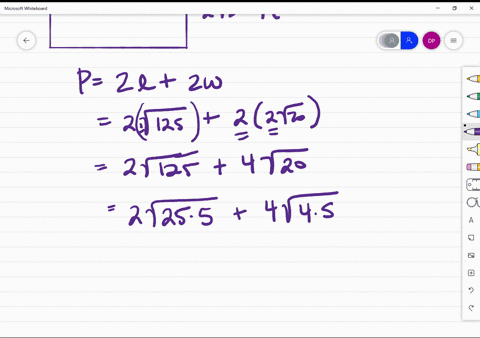 Microsoft Whiteboard
DP
P = 2l + 2w
= 2(√125) + 2(2√20)
= 2√125 + 4√20
= 2√25·5 + 4√4·5